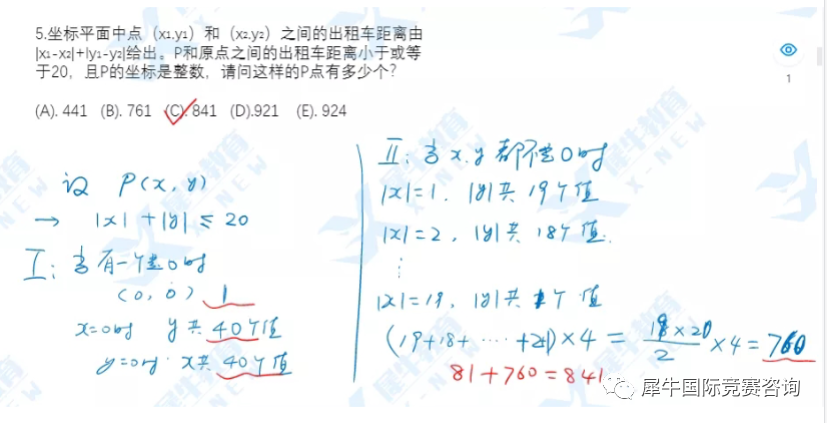 5.坐标平面中点（x₁.y₁）和（x₂.y₂）之间的出租车距离由
|x₁-x₂|+|y₁-y₂|给出。P和原点之间的出租车距离小于或等
于20，且P的坐标是整数，请问这样的P点有多少个?
(A). 441 (B). 761 (C). 841 (D).921 (E). 924
1
设 P(x, y)
→ |x|+|y| ≤ 20
Ⅰ: 当有一个是0时
(0, 0) 1
x=0时 y共40个值
y=0时 x共40个值
Ⅱ: 当x.y都不是0时
|x|=1. |y|共19个值
|x|=2, |y|共18个值.
⋮
|x|=19, |y|共1个值
(19+18+ ⋯ +1)×4 = 19×20/2 ×4=760
81+760=841
犀牛国际竞赛咨询
犀牛教育
X-NEW